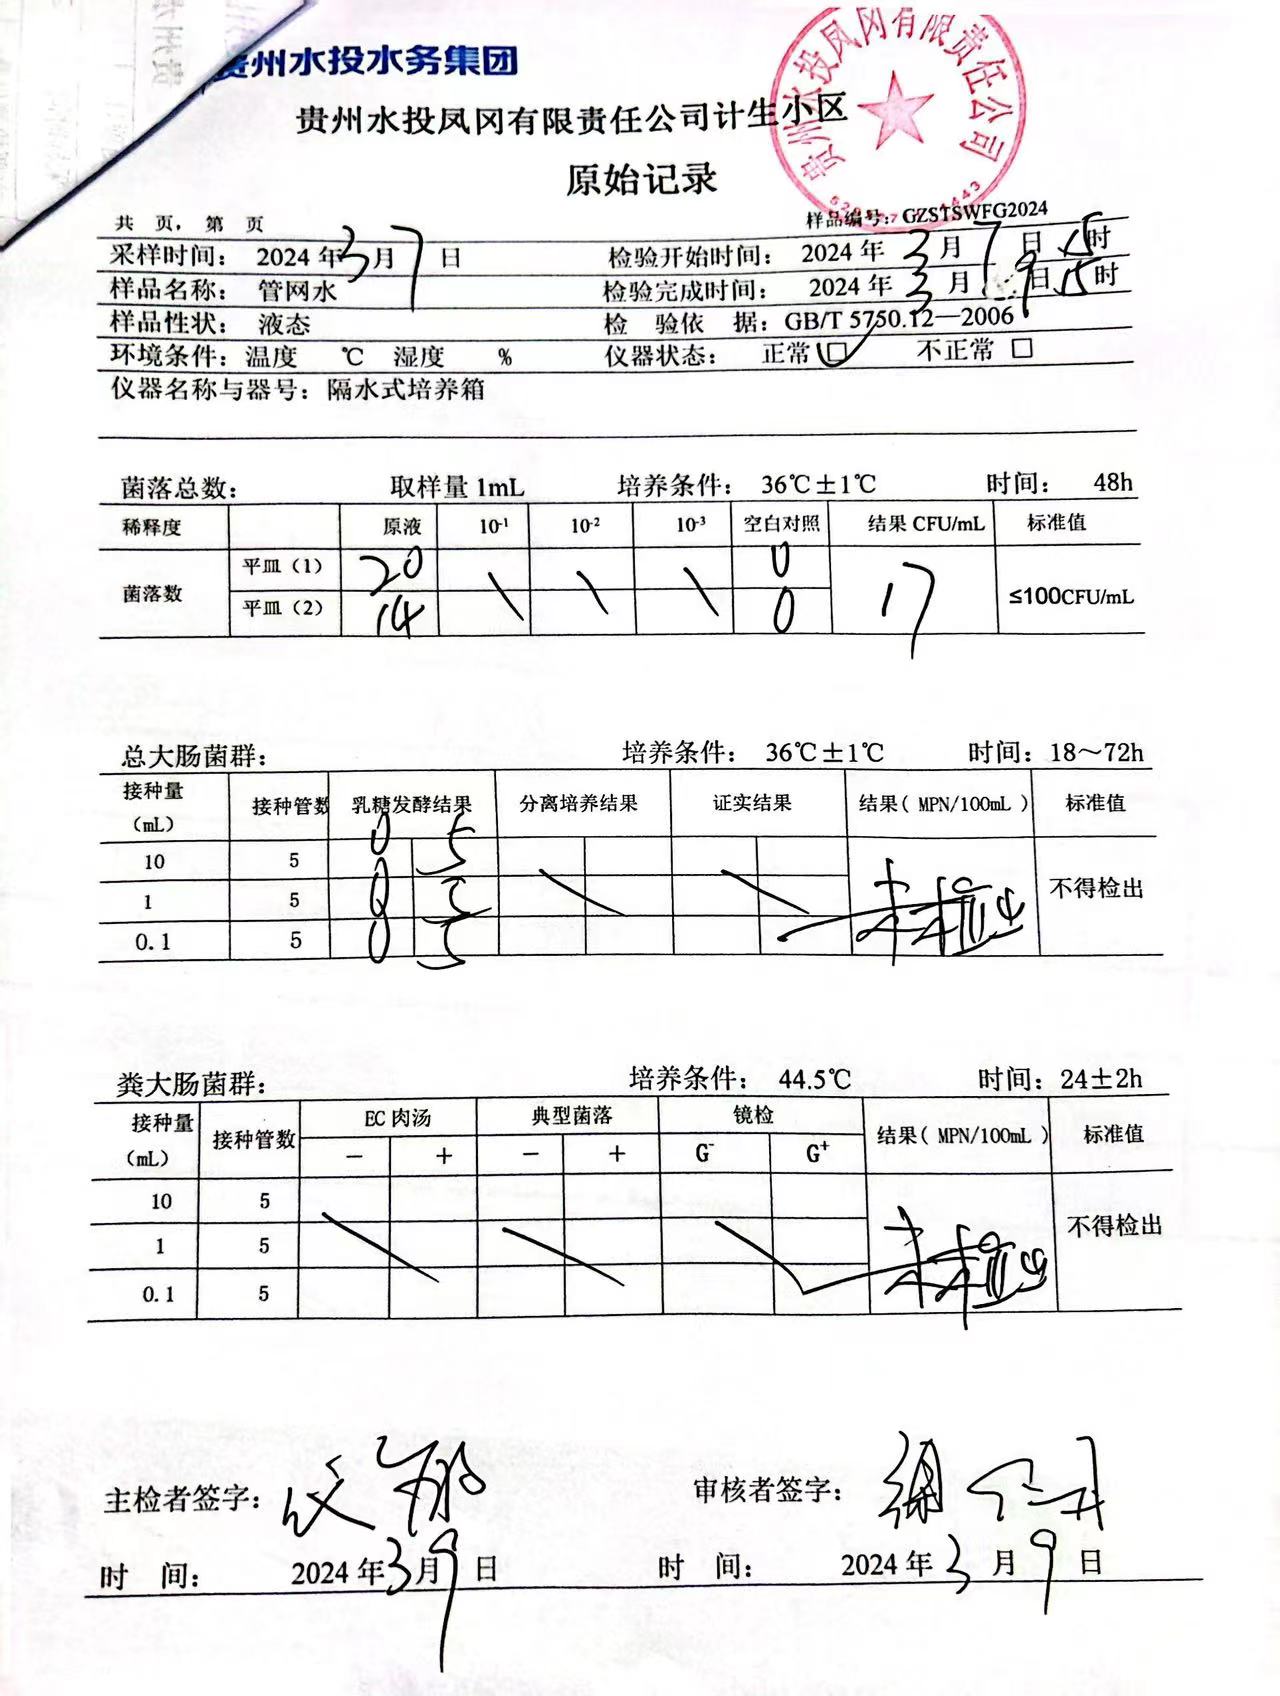 贵州水投水务集团
贵州水投凤冈有限责任公司
贵州水投凤冈有限责任公司计生小区
原始记录
共 页，第 页 样品编号：GZSTSWFG2024
采样时间： 2024 年 3 月 7 日 检验开始时间： 2024 年 3 月 7 日 15 时
样品名称： 管网水 检验完成时间： 2024 年 3 月 9 日 15 时
样品性状： 液态 检 验依 据：GB/T 5750.12—2006
环境条件：温度 ℃ 湿度 % 仪器状态： 正常 □ ✓ 不正常 □
仪器名称与器号：隔水式培养箱
菌落总数： 取样量 1mL 培养条件： 36℃±1℃ 时间： 48h
稀释度 原液 10⁻¹ 10⁻² 10⁻³ 空白对照 结果 CFU/mL 标准值
平皿（1） 20 \ \ \ 0
菌落数 17 ≤100CFU/mL
平皿（2） 14 0
总大肠菌群： 培养条件： 36℃±1℃ 时间：18～72h
接种量（mL） 接种管数 乳糖发酵结果 分离培养结果 证实结果 结果（ MPN/100mL ） 标准值
10 5 0 5
1 5 0 5 未检出 不得检出
0.1 5 0 5
粪大肠菌群： 培养条件： 44.5℃ 时间：24±2h
接种量（mL） 接种管数 EC 肉汤 典型菌落 镜检 结果（ MPN/100mL ） 标准值
－ ＋ － ＋ G⁻ G⁺
10 5
1 5 未检出 不得检出
0.1 5
主检者签字： 审核者签字：
时 间： 2024 年 3 月 9 日 时 间： 2024 年 3 月 9 日